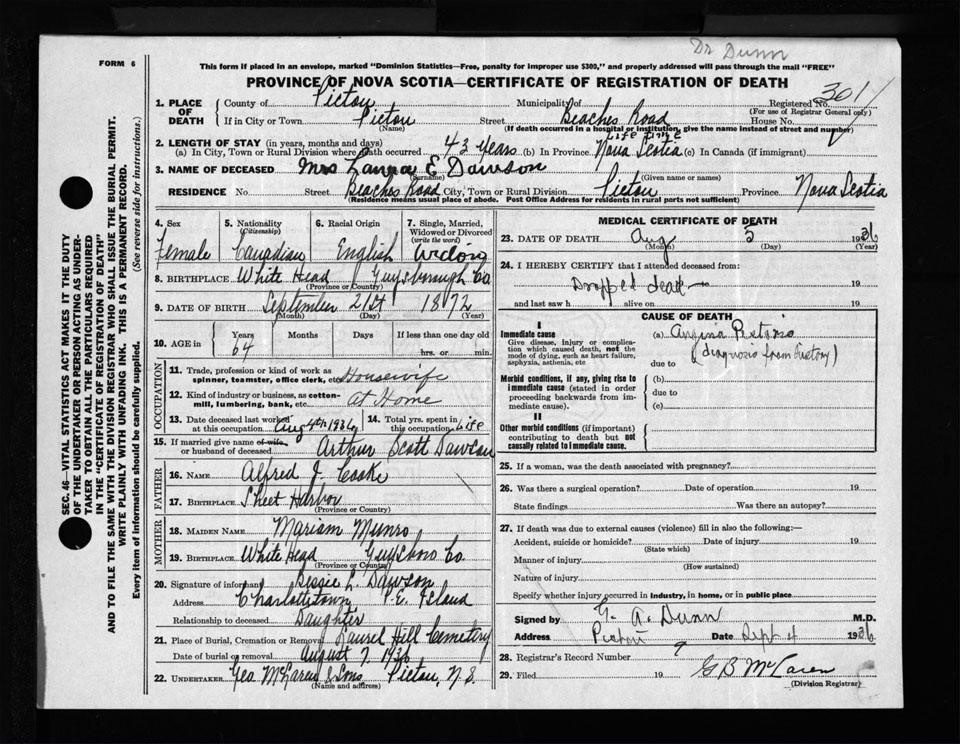 Dr Dunn
FORM 6
This form if placed in an envelope, marked "Dominion Statistics—Free, penalty for improper use $300," and properly addressed will pass through the mail "FREE"
PROVINCE OF NOVA SCOTIA—CERTIFICATE OF REGISTRATION OF DEATH
3011
1. PLACE OF DEATH County of Pictou Municipality of Registered No. (For use of Registrar General only)
If in City or Town Pictou (Name) Street Beaches Road House No.
(If death occurred in a hospital or institution, give the name instead of street and number)
2. LENGTH OF STAY (in years, months and days)
(a) In City, Town or Rural Division where death occurred 43 years (b) In Province Life time Nova Scotia (c) In Canada (if immigrant)
3. NAME OF DECEASED Mrs Laura E Dawson
(Surname) (Given name or names)
RESIDENCE No. Street Beaches Road City, Town or Rural Division Pictou Province Nova Scotia
(Residence means usual place of abode. Post Office Address for residents in rural parts not sufficient)
4. Sex Female
5. Nationality (Citizenship) Canadian
6. Racial Origin English
7. Single, Married, Widowed or Divorced (write the word)
8. BIRTHPLACE White Head Guysborough Co.
(Province or Country)
9. DATE OF BIRTH September 21st 1872
(Month) (Day) (Year)
10. AGE in Years 64 Months Days If less than one day old hrs. or min.
OCCUPATION
11. Trade, profession or kind of work as spinner, teamster, office clerk, etc. Housewife
12. Kind of industry or business, as cotton-mill, lumbering, bank, etc. At Home
13. Date deceased last worked at this occupation Aug 4th 1936
14. Total yrs. spent in this occupation Life
15. If married give name of wife or husband of deceased Arthur Scott Dawson
FATHER
16. NAME Alfred J Cooke
17. BIRTHPLACE Sheet Harbor
(Province or Country)
MOTHER
18. MAIDEN NAME Mariam Munro
19. BIRTHPLACE White Head Guysboro Co.
(Province or Country)
20. Signature of informant Bessie L. Dawson
Address Charlottetown P.E. Island
Relationship to deceased Daughter
21. Place of Burial, Cremation or Removal Laurel Hill Cemetery
Date of burial or removal August 7, 1936
22. UNDERTAKER Geo McLaren & Sons Pictou, N.S.
(Name and address)
MEDICAL CERTIFICATE OF DEATH
23. DATE OF DEATH Aug 5 1936
(Month) (Day) (Year)
24. I HEREBY CERTIFY that I attended deceased from:
Dropped dead 19
and last saw h alive on 19
CAUSE OF DEATH
I
Immediate cause
Give disease, injury or complication which caused death, not the mode of dying, such as heart failure, asphyxia, asthenia, etc
(a) Angina Pectoris
(diagnosis from history)
due to
Morbid conditions, if any, giving rise to immediate cause (stated in order proceeding backwards from immediate cause).
(b)
due to
(c)
II
Other morbid conditions (if important) contributing to death but not causally related to immediate cause.
25. If a woman, was the death associated with pregnancy?
26. Was there a surgical operation? Date of operation 19
State findings Was there an autopsy?
27. If death was due to external causes (violence) fill in also the following:—
Accident, suicide or homicide? Date of injury 19
(State which)
Manner of injury
(How sustained)
Nature of injury
Specify whether injury occurred in industry, in home, or in public place
Signed by G. A. Dunn M.D.
Address Pictou Date Sept 4 1936
28. Registrar's Record Number 9
29. Filed 19 G B McLaren
(Division Registrar)
SEC. 46—VITAL STATISTICS ACT MAKES IT THE DUTY
OF THE UNDERTAKER OR PERSON ACTING AS UNDER-
TAKER TO OBTAIN ALL THE PARTICULARS REQUIRED
IN THE "CERTIFICATE OF REGISTRATION OF DEATH"
AND TO FILE THE SAME WITH THE DIVISION REGISTRAR WHO SHALL ISSUE THE BURIAL PERMIT.
WRITE PLAINLY WITH UNFADING INK. THIS IS A PERMANENT RECORD.
Every item of information should be carefully supplied. (See reverse side for instructions.)